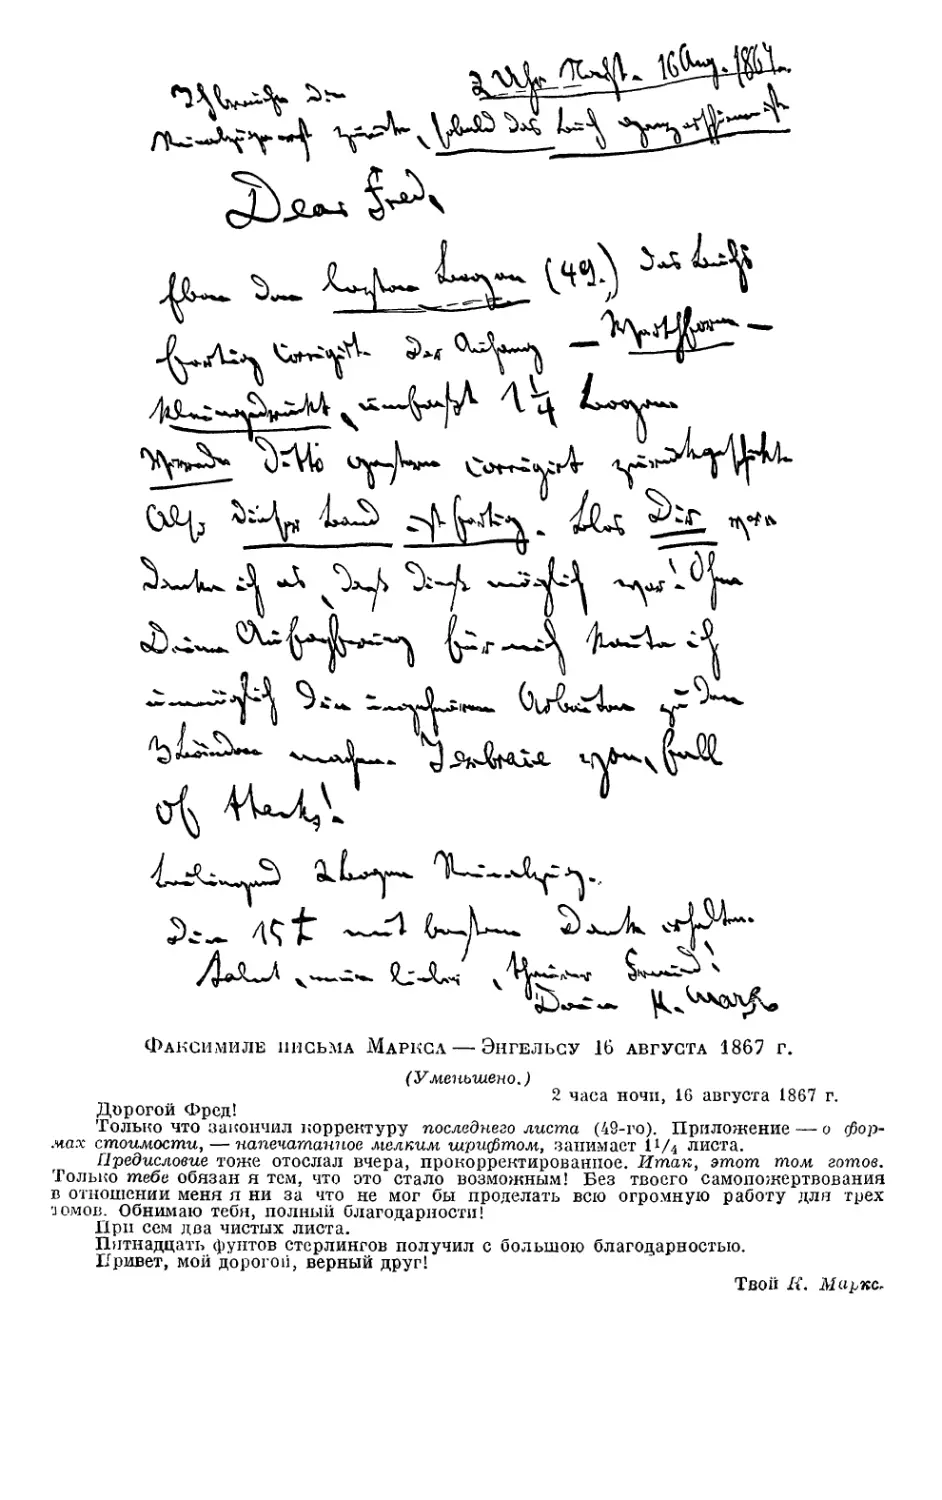 Ich brauche die
2 Uhr Nacht. 16 Aug. 1867.
Reinabzüge erst zurück, sobald das Buch ganz erschienen ist
Dear Fred,
Eben den letzten Bogen (49.) des Buchs
fertig corrigirt. Der Anhang — Werthform —
kleingedruckt, umfaßt 1 1/4 Bogen.
Vorrede ditto gestern corrigirt zurückgeschickt.
Also dieser Band ist fertig. Blos Dir ver
danke ich es, daß dieß möglich war! Ohne
Deine Aufopferung für mich konnte ich
unmöglich die ungeheuren Arbeiten zu den
3 Bänden machen. I embrace you, full
of thanks!
Beiliegend 2 Bogen Reinabzug.
Die 15 £ mit bestem Dank erhalten.
Salut, mein lieber, theurer Freund!
Dein K. Marx
Факсимиле письма Маркса — Энгельсу 16 августа 1867 г.
(Уменьшено.)
2 часа ночи, 16 августа 1867 г.
Дорогой Фред!
Только что закончил корректуру последнего листа (49-го). Приложение — о фор-
мах стоимости, — напечатанное мелким шрифтом, занимает 1 1/4 листа.
Предисловие тоже отослал вчера, прокорректированное. Итак, этот том готов.
Только тебе обязан я тем, что это стало возможным! Без твоего самопожертвования
в отношении меня я ни за что не мог бы проделать всю огромную работу для трех
томов. Обнимаю тебя, полный благодарности!
При сем два чистых листа.
Пятнадцать фунтов стерлингов получил с большою благодарностью.
Привет, мой дорогой, верный друг!
Твой К. Маркс.